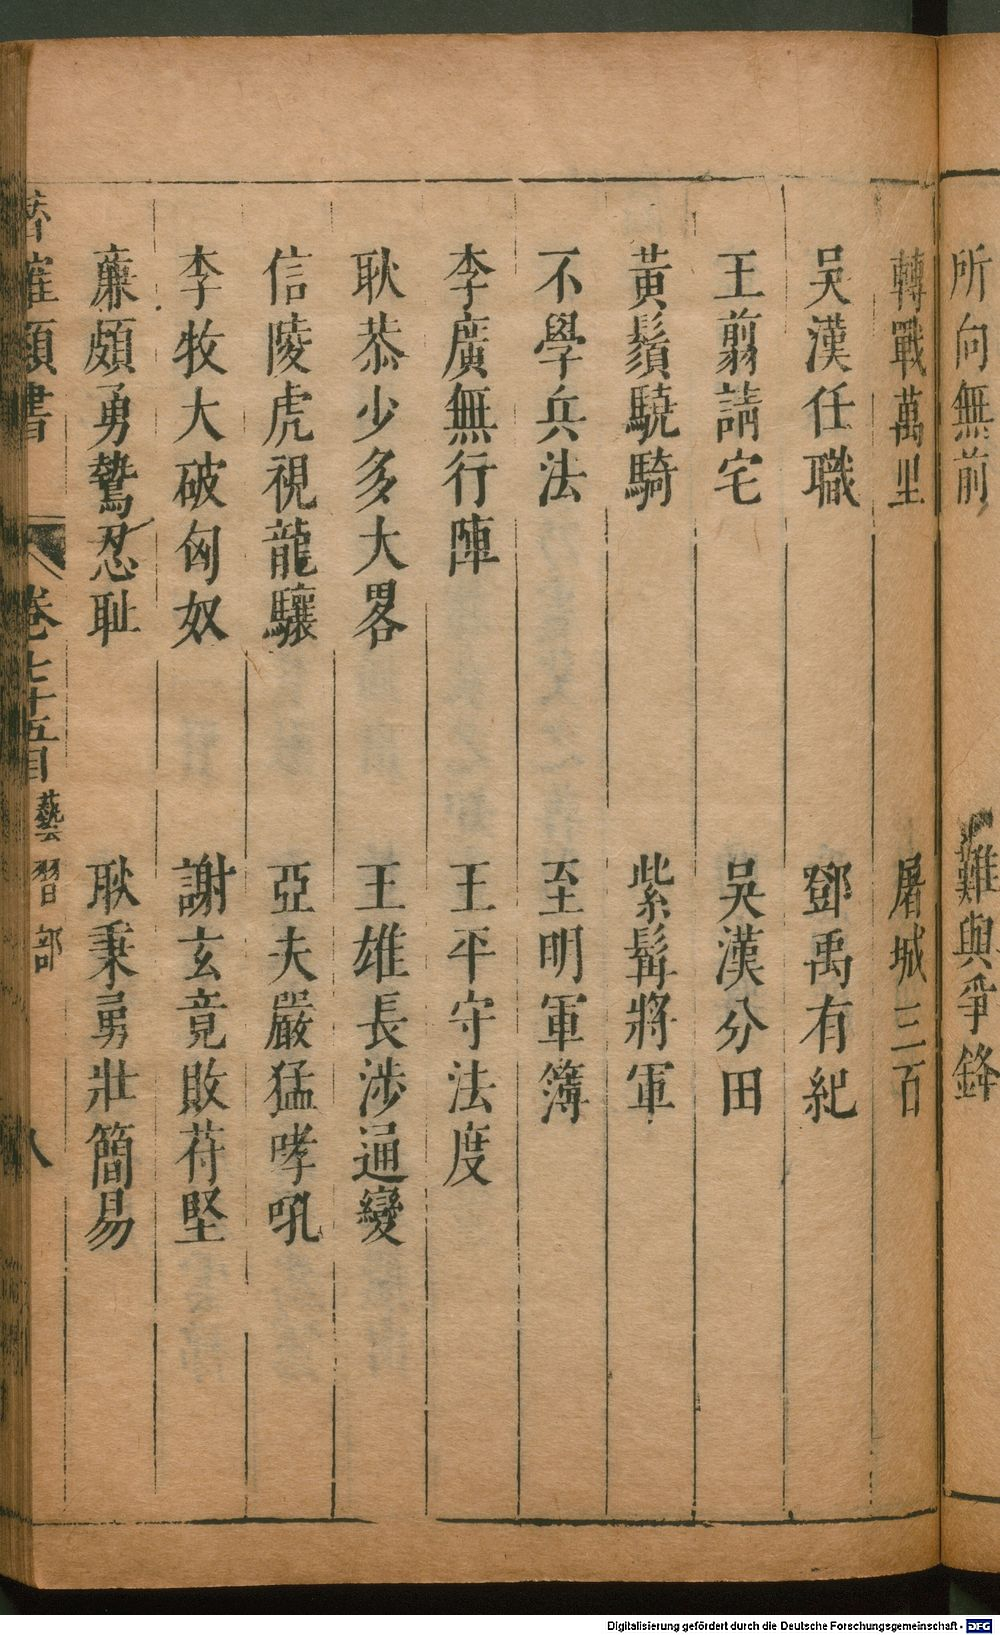 所向無前　難與爭鋒
轉戰萬里　屠城三百
吳漢任職　鄧禹有紀
王翦請宅　吳漢分田
黃鬚驍騎　紫髯將軍
不學兵法　至明軍簿
李廣無行陣　王平守法度
耿恭少多大畧　王雄長涉通變
信陵虎視龍驤　亞夫嚴猛哮吼
李牧大破匈奴　謝玄竟敗苻堅
廉頗勇鷙忍恥　耿秉勇壯簡易
類書　卷七十五目　藝習部　八
Digitalisierung gefördert durch die Deutsche Forschungsgemeinschaft - DFG